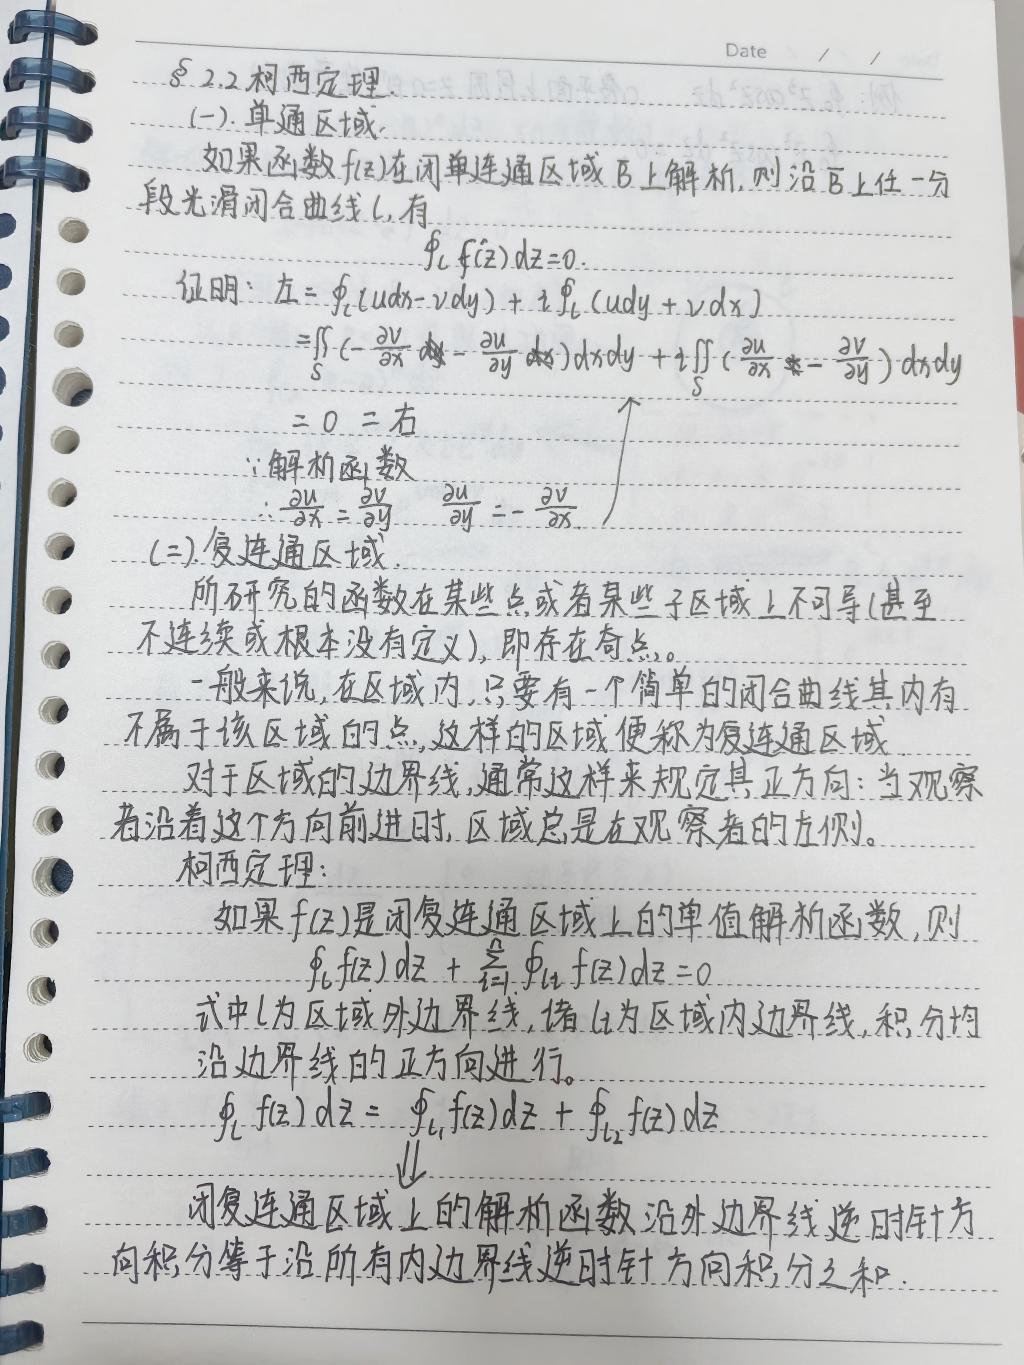 Date / /
§2.2 柯西定理.
(一).单通区域.
如果函数f(z)在闭单连通区域B̄上解析,则沿B̄上任一分
段光滑闭合曲线l,有
∮ₗ f(z)dz=0.
证明: 左=∮ₗ(udx-vdy)+i∮ₗ(udy+vdx)
=∬_S(-∂v/∂x - ∂u/∂y)dxdy+i∬_S(∂u/∂x - ∂v/∂y)dxdy
= 0 = 右
∵解析函数
∴ ∂u/∂x = ∂v/∂y ∂u/∂y = - ∂v/∂x
(二).复连通区域.
所研究的函数在某些点或者某些子区域上不可导(甚至
不连续或根本没有定义),即存在奇点。
一般来说,在区域内,只要有一个简单的闭合曲线其内有
不属于该区域的点,这样的区域便称为复连通区域
对于区域的边界线,通常这样来规定其正方向:当观察
者沿着这个方向前进时,区域总是在观察者的左侧。
柯西定理:
如果f(z)是闭复连通区域上的单值解析函数,则
∮ₗ f(z)dz + Σⁿᵢ₌₁ ∮ₗᵢ f(z)dz=0
式中l为区域外边界线,诸lᵢ为区域内边界线,积分均
沿边界线的正方向进行。
∮ₗ f(z)dz = ∮ₗ₁ f(z)dz + ∮ₗ₂ f(z)dz
⇓
闭复连通区域上的解析函数沿外边界线逆时针方
向积分等于沿所有内边界线逆时针方向积分之和.